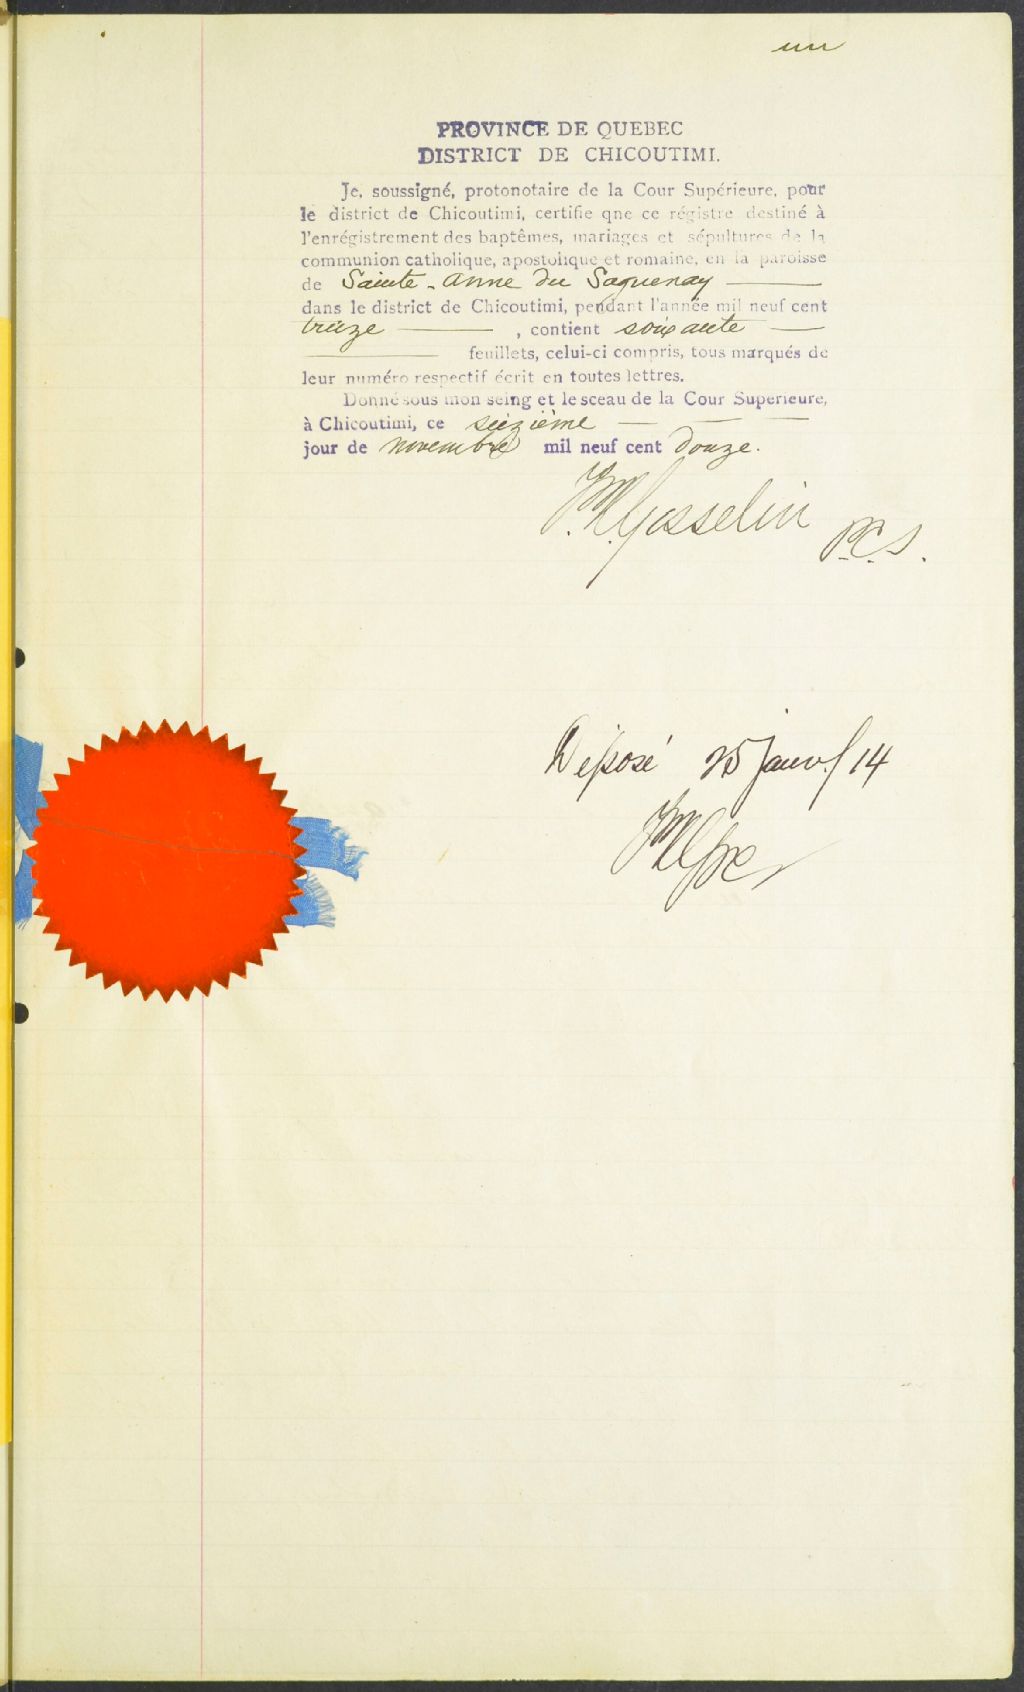 un
PROVINCE DE QUEBEC
DISTRICT DE CHICOUTIMI.
Je, soussigné, protonotaire de la Cour Supérieure, pour
le district de Chicoutimi, certifie qne ce régistre destiné à
l'enrégistrement des baptêmes, mariages et sépultures de la
communion catholique, apostolique et romaine, en la paroisse
de Sainte-Anne du Saguenay
dans le district de Chicoutimi, pendant l'année mil neuf cent
treize , contient soixante
feuillets, celui-ci compris, tous marqués de
leur numéro respectif écrit en toutes lettres.
Donné sous mon seing et le sceau de la Cour Superieure,
à Chicoutimi, ce seizième
jour de novembre mil neuf cent douze.
Gosselin P.C.S.
Déposé 25 janv/14